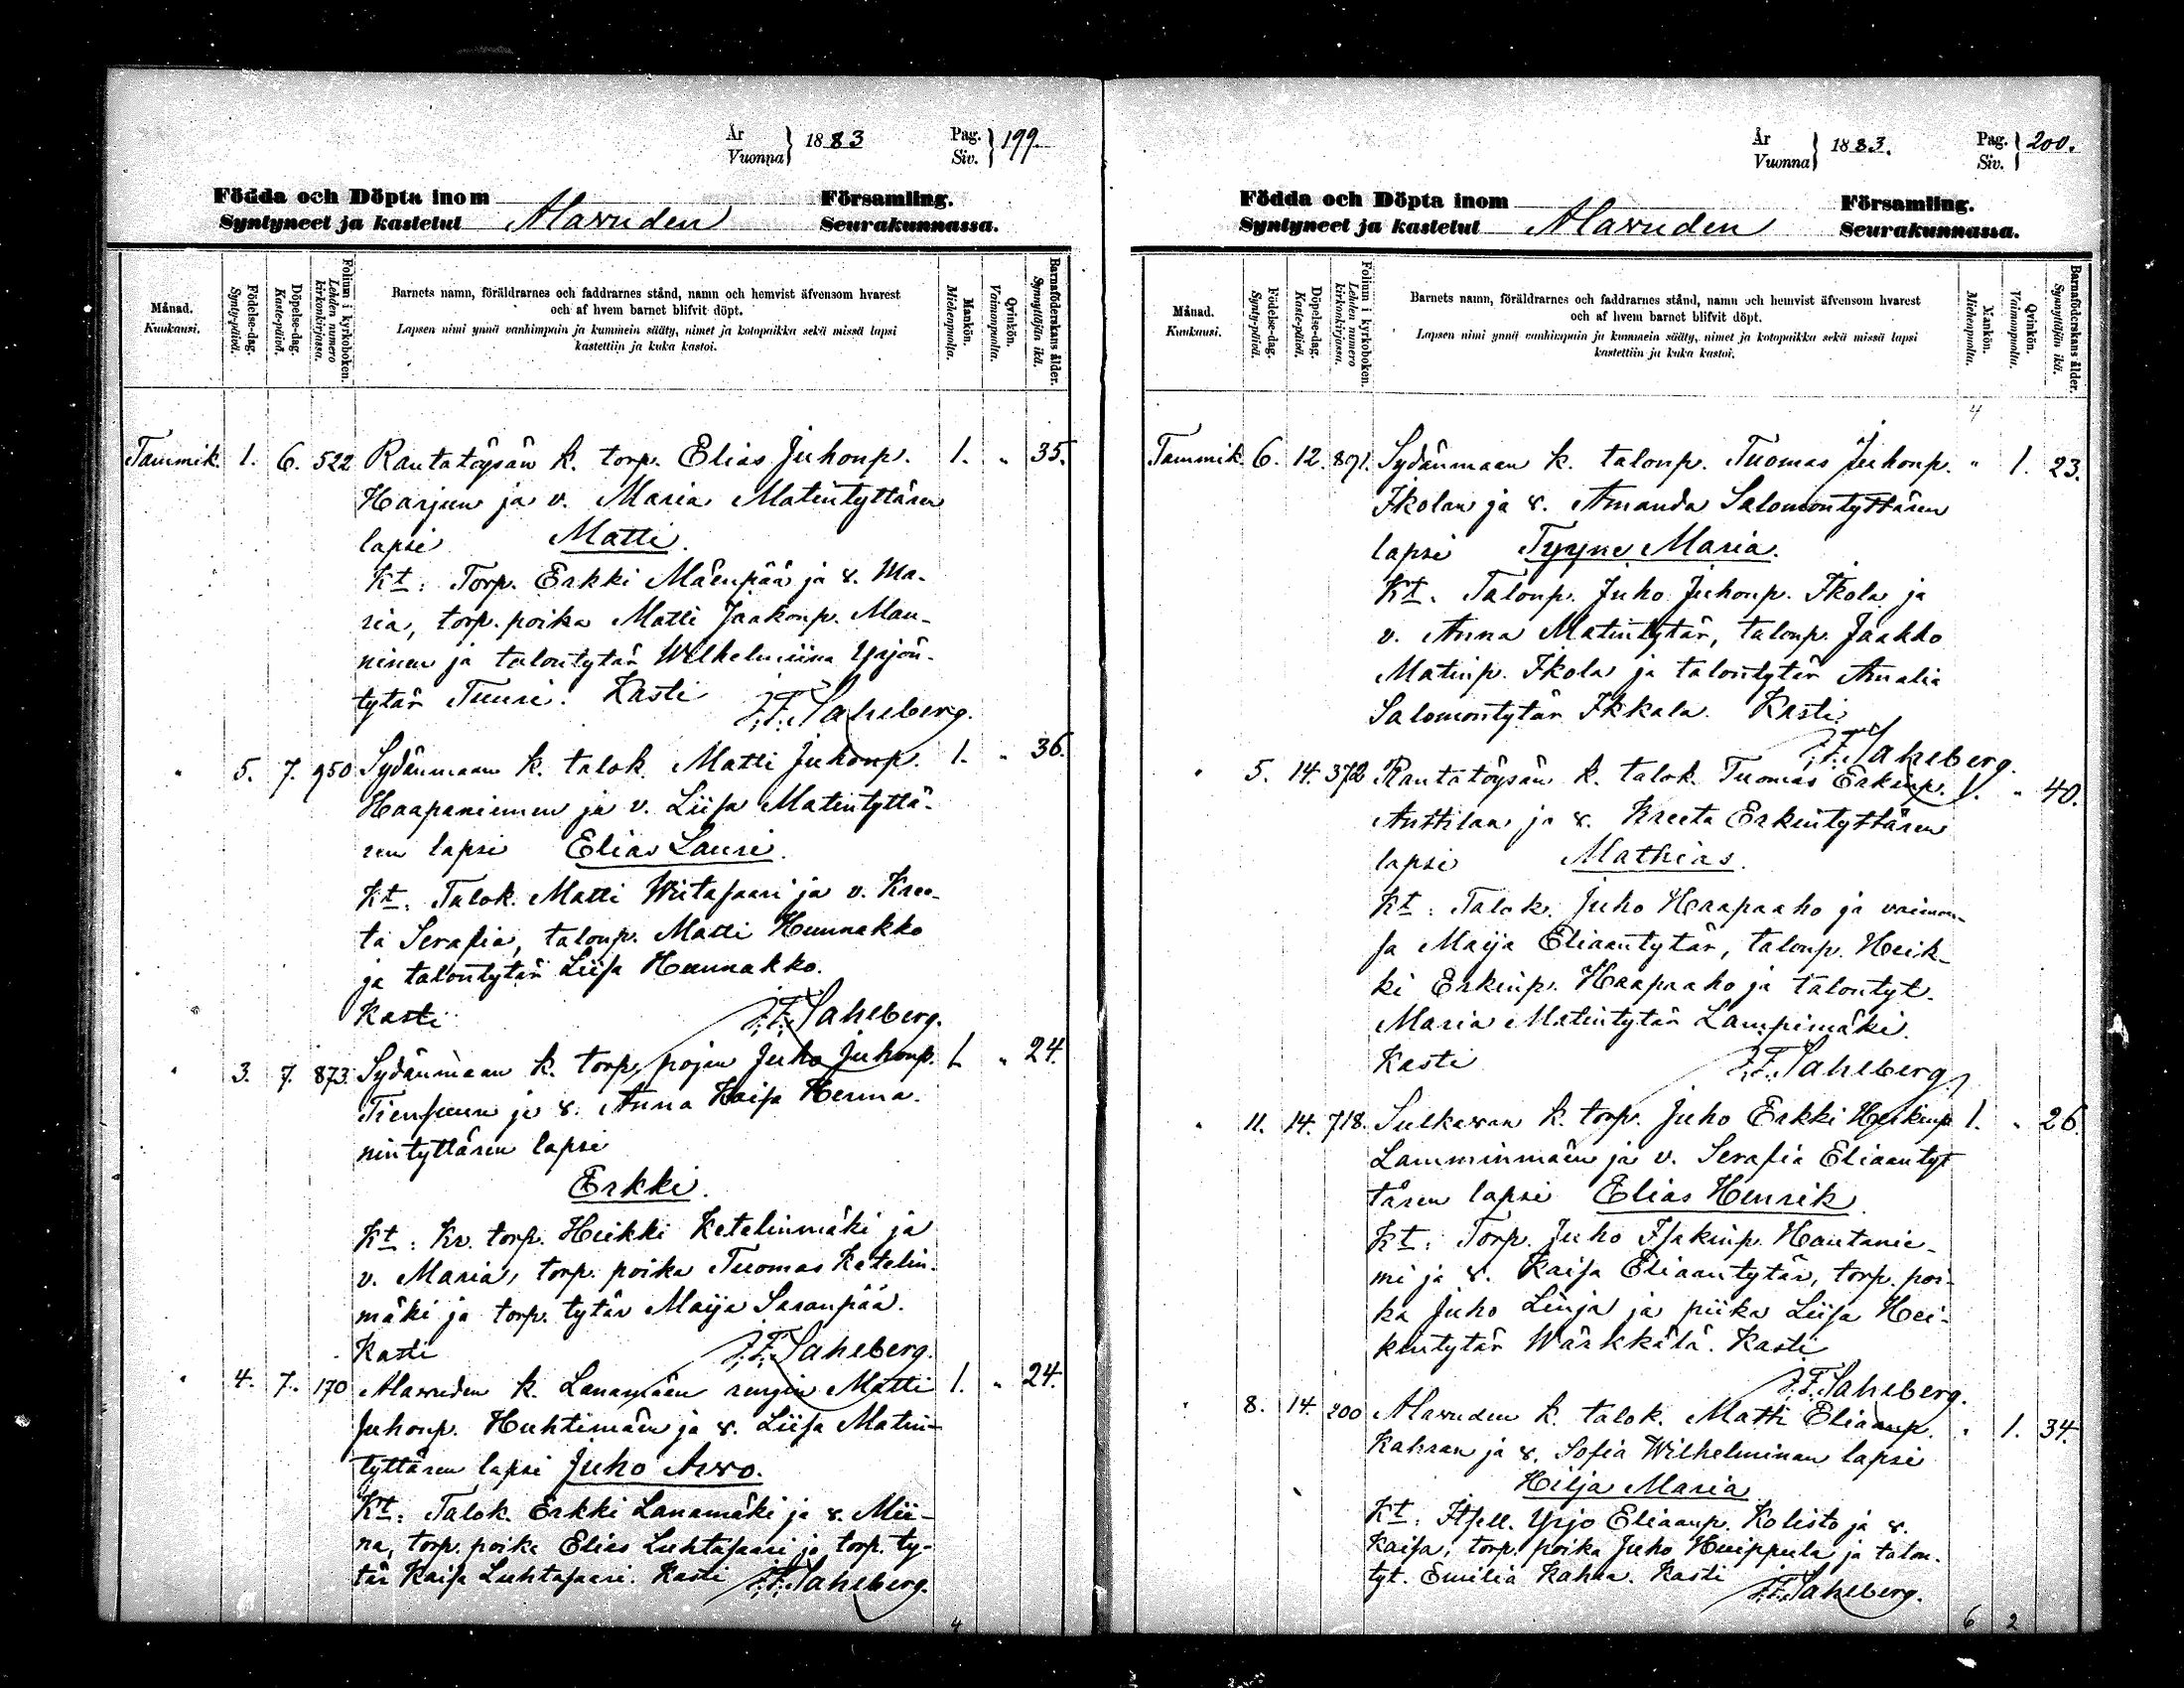 År
Vuonna } 1883
Pag.
Siv. } 199.
Födda och Döpta inom Församling.
Syntyneet ja kastetut Alavuden Seurakunnassa.
Månad.
Kuukausi.
Födelse-dag.
Synty-päivä.
Döpelse-dag.
Kaste-päivä.
Folium i kyrkoboken.
Lehden numero kirkonkirjassa.
Barnets namn, föräldrarnes och faddrarnes stånd, namn och hemvist äfvensom hvarest
och af hvem barnet blifvit döpt.
Lapsen nimi ynnä vanhimpain ja kummein sääty, nimet ja kotopaikka sekä missä lapsi
kastettiin ja kuka kastoi.
Mankön.
Miehenpuolta.
Qvinkön.
Vaimonpuolta.
Barnaföderskans ålder.
Synnyttäjän ikä.
Tammik. 1. 6. 522 Rantatöysän k. torp. Elias Juhonp. 1. " 35.
Harjun ja v. Maria Matintyttären
lapsi Matti.
Kt: Torp. Erkki Mäenpää ja v. Ma-
ria, torp. poika Matti Jaakonp. Man-
ninen ja talontytär Wilhelmiina Yrjön-
tytär Tuuri. Kasti J.F. Saheberg.
" 5. 7. 950 Sydänmaan k. talok. Matti Juhonp. 1. " 36.
Haapaniemen ja v. Liisa Matintyttä-
ren lapsi Elias Lauri.
Kt: Talok. Matti Wiitasaari ja v. Kree-
ta Serafia, talonp. Matti Hunnakko
ja talontytär Liisa Hunnakko.
Kasti J.F. Saheberg.
" 3. 7. 873. Sydänmaan k. torp. pojan Juho Juhonp. 1. " 24.
Tiensuun ja v. Anna Kaisa Herma-
nintyttären lapsi
Erkki.
Kt: Kv. torp. Heikki Ketelinmäki ja
v. Maria, torp. poika Tuomas Ketelin-
mäki ja torp. tytär Maija Saranpää.
Kasti J.F. Saheberg.
" 4. 7. 170 Alavuden k. Lanamäen rengin Matti 1. " 24.
Juhonp. Huhtimäen ja v. Liisa Matin-
tyttären lapsi Juho Arvo.
Kt: Talok. Erkki Lanamäki ja v. Mii-
na, torp. poika Elias Luhtasaari ja torp. ty-
tär Kaisa Luhtasaari. Kasti J.F. Saheberg.
4
År
Vuonna } 1883.
Pag.
Siv. } 200.
Födda och Döpta inom Församling.
Syntyneet ja kastetut Alavuden Seurakunnassa.
Månad.
Kuukausi.
Födelse-dag.
Synty-päivä.
Döpelse-dag.
Kaste-päivä.
Folium i kyrkoboken.
Lehden numero kirkonkirjassa.
Barnets namn, föräldrarnes och faddrarnes stånd, namn och hemvist äfvensom hvarest
och af hvem barnet blifvit döpt.
Lapsen nimi ynnä vanhimpain ja kummein sääty, nimet ja kotopaikka sekä missä lapsi
kastettiin ja kuka kastoi.
Mankön.
Miehenpuolta.
Qvinkön.
Vaimonpuolta.
Barnaföderskans ålder.
Synnyttäjän ikä.
4
Tammik. 6. 12. 891. Sydänmaan k. talonp. Tuomas Juhonp. " 1. 23.
Ikolan ja v. Amanda Salomontyttären
lapsi Tyyne Maria.
Kt. Talonp. Juho Juhonp. Ikola ja
v. Anna Matintytär, talonp. Jaakko
Matinp. Ikola ja talontytär Amalia
Salomontytär Ikkala. Kasti
J.F. Saheberg.
" 5. 14. 372 Rantatöysän k. talok. Tuomas Erkinp. 1. " 40.
Anttilan ja v. Kreeta Erkintyttären
lapsi Mathias.
Kt: Talok. Juho Haapaaho ja vaimon-
sa Maija Eliaantytär, talonp. Heik-
ki Erkinp. Haapaaho ja talontyt.
Maria Matintytär Lampimäki.
Kasti J.F. Saheberg.
" 11. 14. 718. Sulkavan k. torp. Juho Erkki Heikinp. 1. " 26.
Lamminmäen ja v. Serafia Eliaantyt
tären lapsi Elias Henrik.
Kt: Torp. Juho Isakinp. Hautanie-
mi ja v. Kaisa Eliaantytär, torp. poi-
ka Juho Linja ja piika Liisa Hei-
kintytär Wärkkälä. Kasti
J.F. Saheberg.
" 8. 14. 200 Alavuden k. talok. Matti Eliaanp. " 1. 34.
Kahran ja v. Sofia Wilhelminan lapsi
Hilja Maria
Kt: Itsell. Yrjo Eliaanp. Kolisto ja v.
Kaisa, torp. poika Juho Huippula ja talon-
tyt. Emilia Kahra. Kasti J.F. Saheberg.
6 2